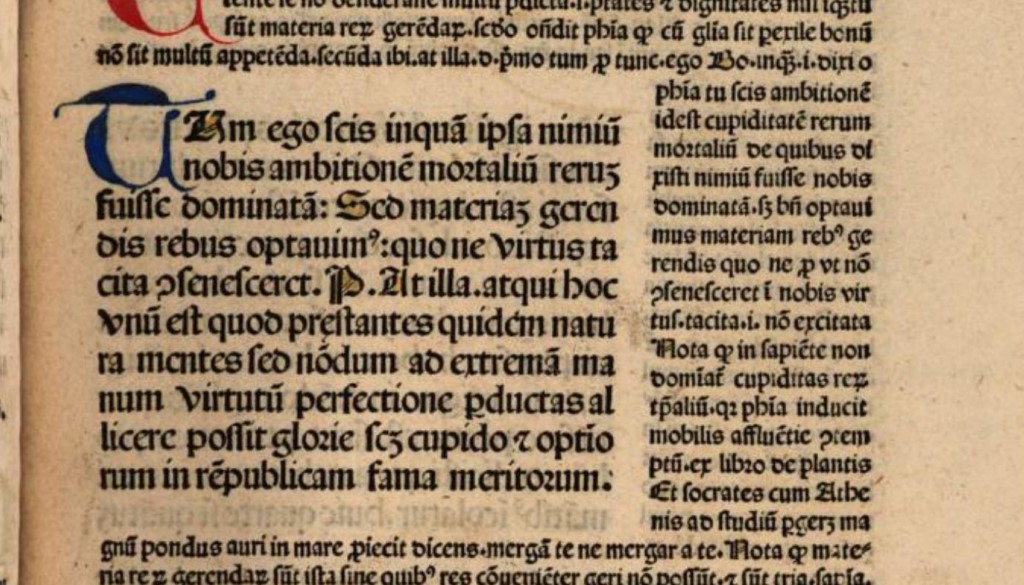 sūt materia reꝝ gerēdaꝝ.scďo oñdit phīa ꝙ cū glīa sit ꝑexile bonū
nō sit multū appetēda.secūda ibi.at illa.ď.pͥmo tum ꝓ tunc.ego Bo.inqꝫ.i.dixi o
Tum ego scis inquā ipsa nimiū
nobis ambitionē mortaliū reruꝫ
fuisse dominatā: Sed materiaꝫ geren
dis rebus optauimꝰ:quo ne virtus ta
cita ꝯsenesceret. P. At illa.atqui hoc
vnū est quod prestantes quidem natu
ra mentes sed nōdum ad extremā ma
num virtutū perfectione ꝑductas al
licere possit glorie scꝫ cupido ⁊ optīo
rum in rēpublicam fama meritorum:
phīa tu scis ambitionē
idest cupiditatē rerum
mortaliū de quibus di
xisti nimiū fuisse nobis
dominatā.sꝫ bn̄ optaui
mus materiam rebꝰ ge
rendis quo ne ꝓ vt nō
ꝯsenesceret ī nobis vir
tus.tacita.i. nō excitata
Nota ꝙ in sapiēte non
domīat̄ cupiditas reꝝ
tp̄aliū.qꝛ phīa inducit
mobilis affluētie ꝯtem
ptū.ex libro de plantis
Et socrates cum Athe
nis ad studiū ꝑgerꝫ ma
gnū pondus auri in mare ꝓiecit dicens.mergā te ne mergar a te.Nota ꝙ mate⸗
ria reꝝ gerendaꝝ sūt ista sine quibꝰ res cōueniēter geri nō possūt.⁊ sūt tria.sapīa.